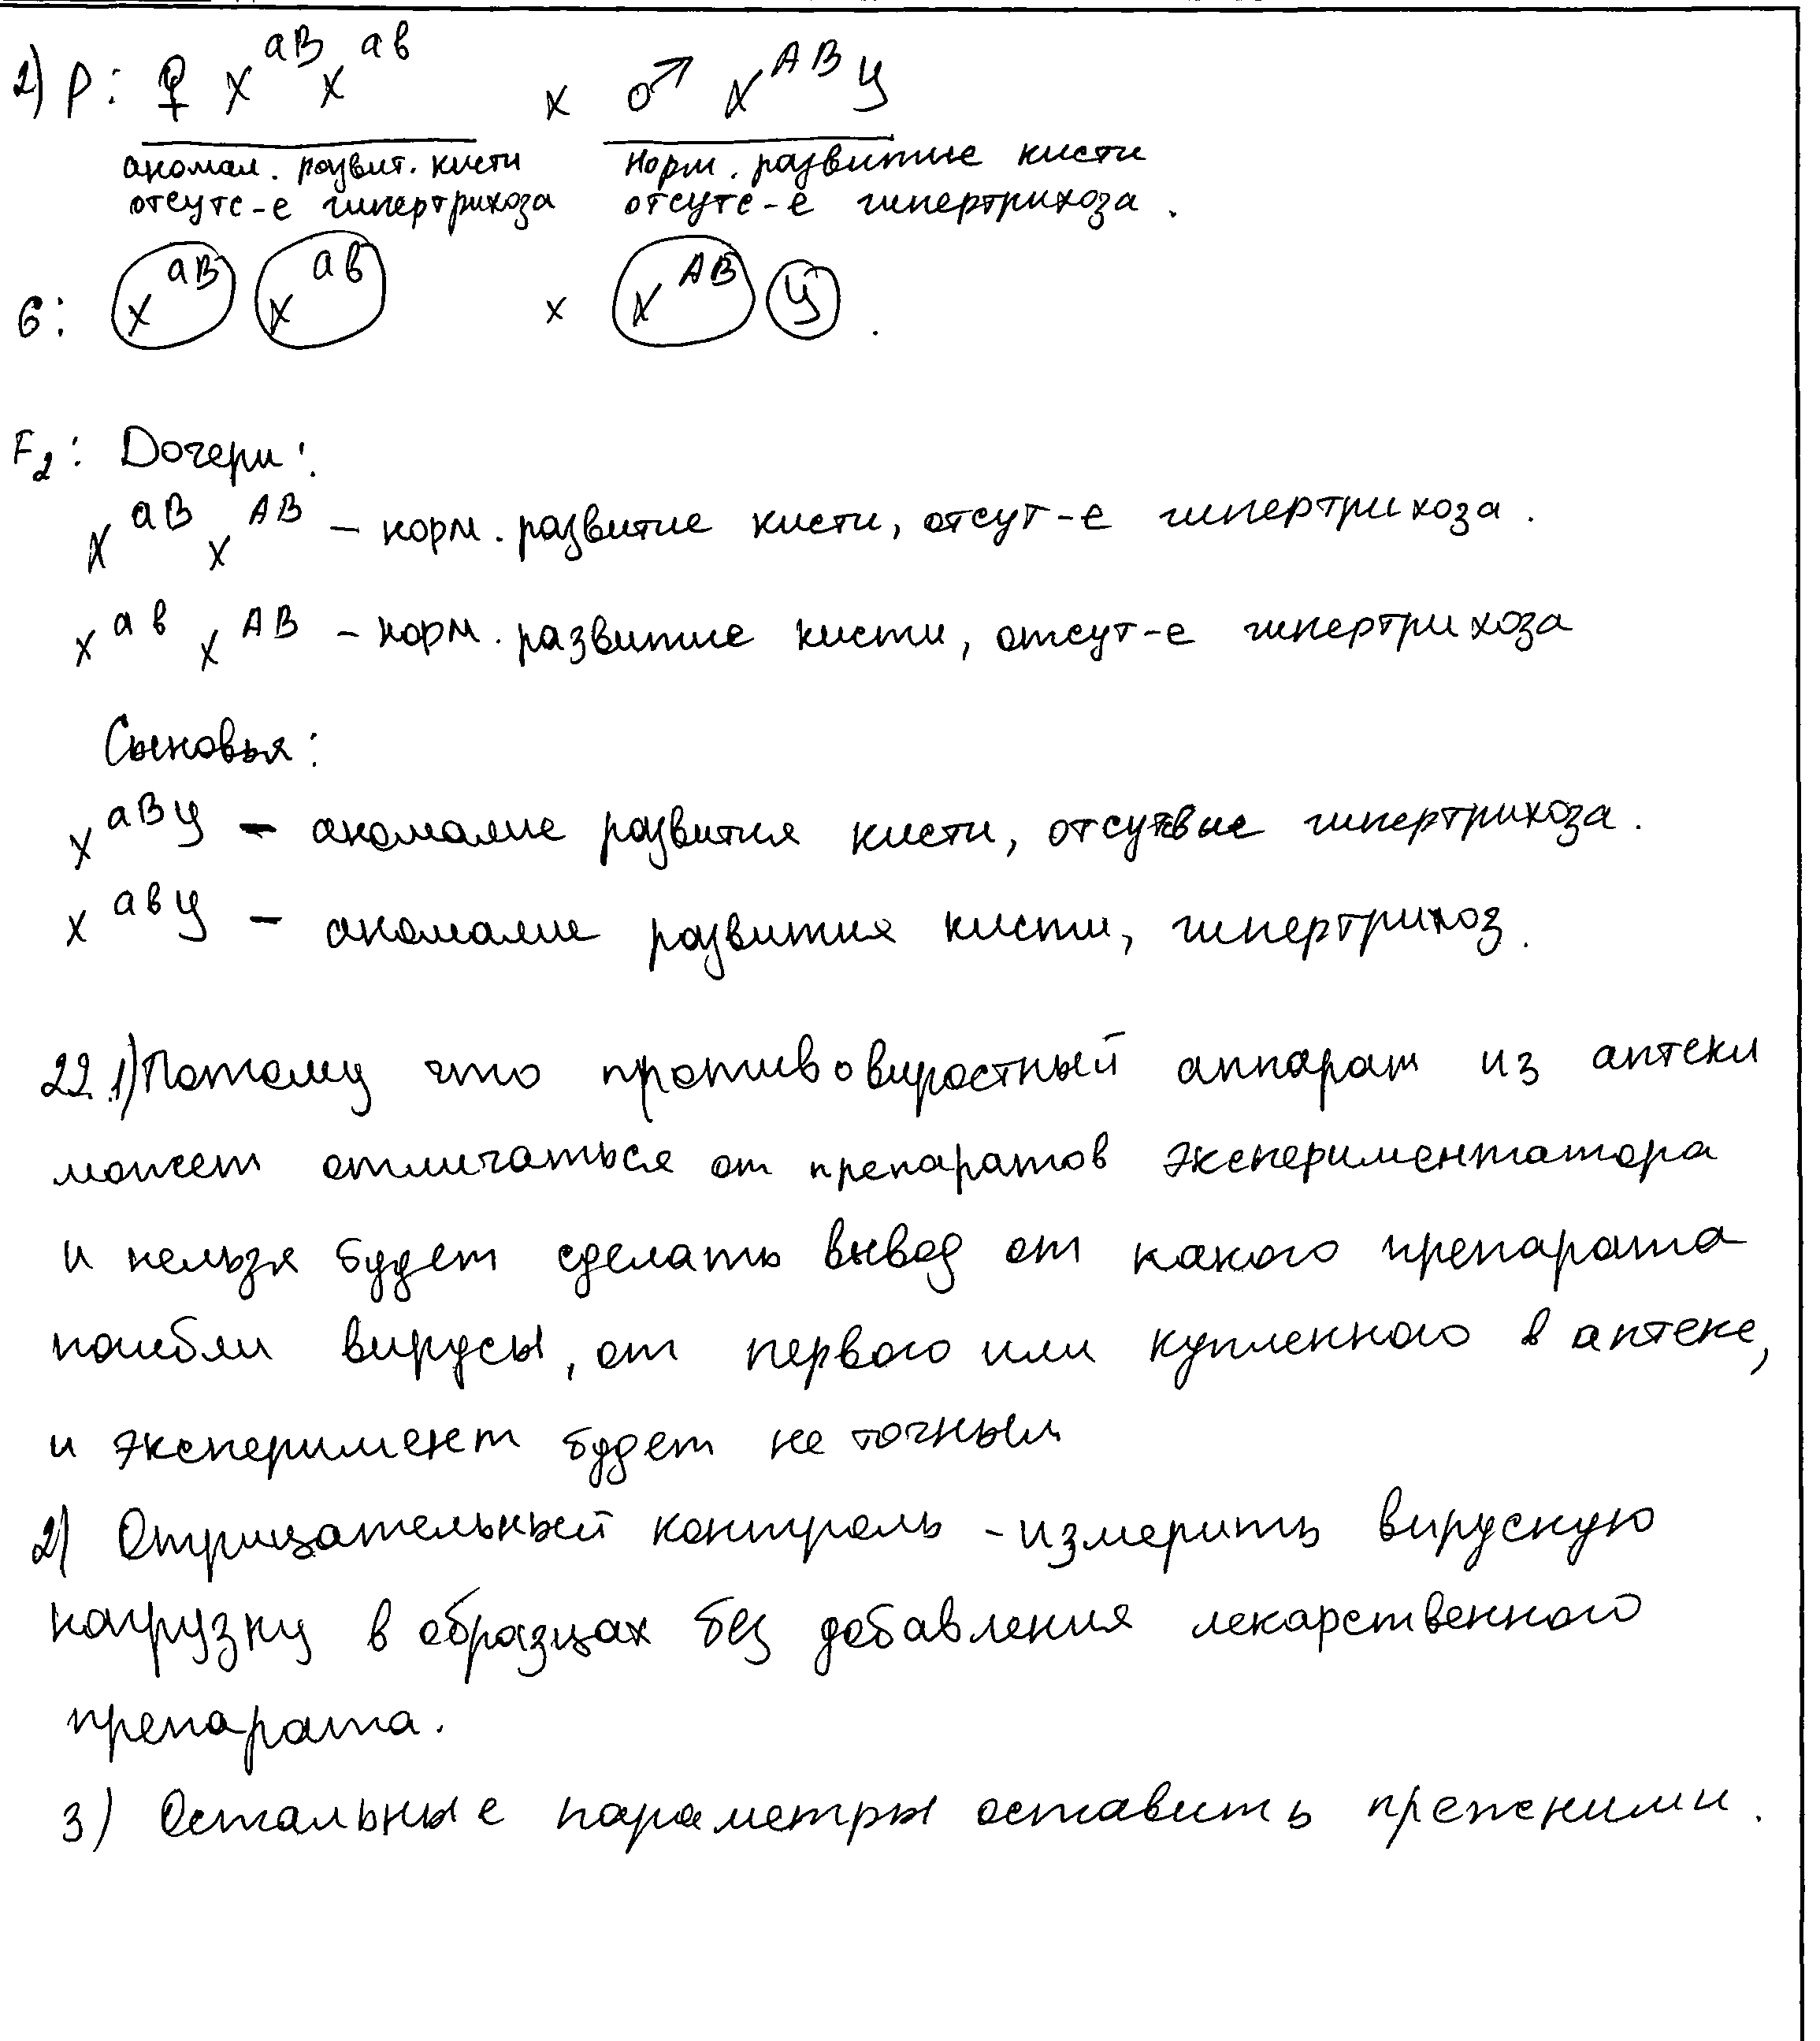 2) P: ♀ X^aB X^ab x ♂ X^AB У
аномал. развит. кисти норм. развитие кисти
отсутс-е гипертрихоза отсутс-е гипертрихоза.
G: X^aB X^ab x X^AB У.
F2: Дочери:
X^aB X^AB – норм. развитие кисти, отсут-е гипертрихоза.
X^ab X^AB – норм. развитие кисти, отсут-е гипертрихоза
Сыновья:
X^aB У – аномалие развития кисти, отсутвие гипертрихоза.
X^ab У – аномалие развития кисти, гипертрихоз.
22.1) Потому что противовиростный аппарат из аптеки
может отличаться от препаратов экспериментатора
и нельзя будет сделать вывод от какого препарата
погибли вирусы, от первого или купленного в аптеке,
и эксперимент будет не точным
2) Отрицательный контроль - измерить вирусную
нагрузку в образцах без добавления лекарственного
препарата.
3) Остальные параметры оставить прежними.